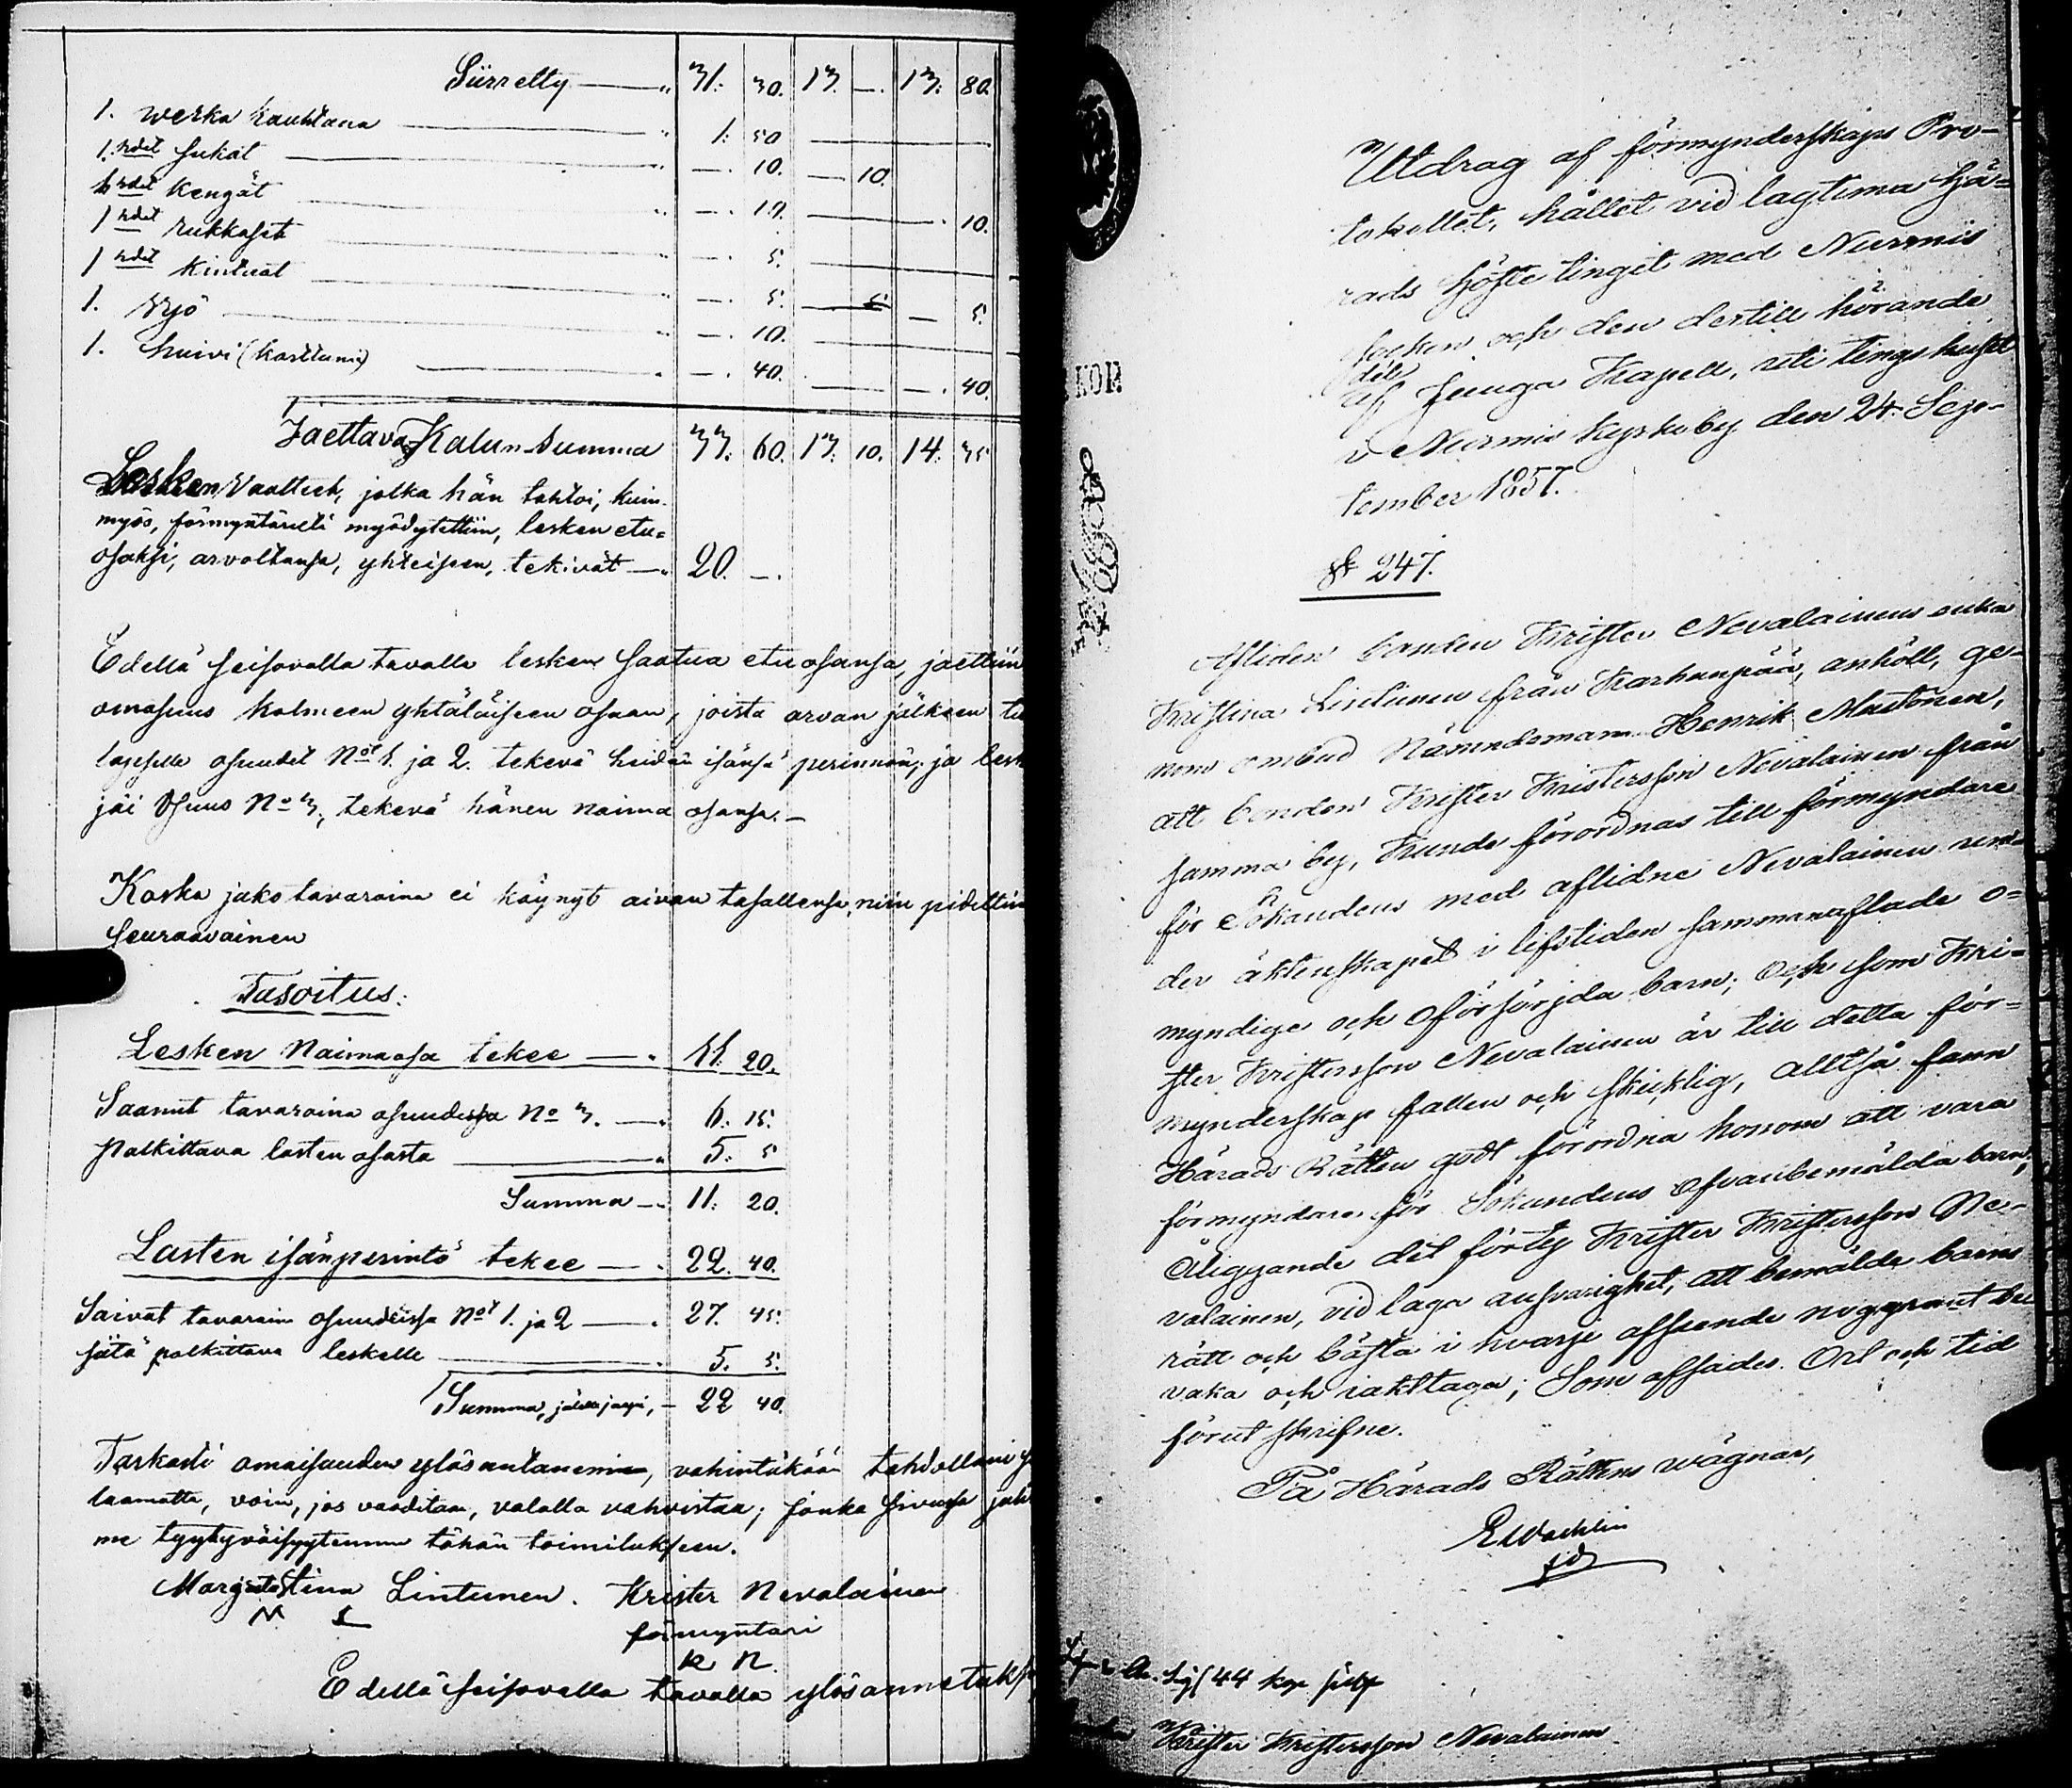 Siirretty — " 31. 30. 13. —. 13. 80.
1. werka kauhtana — " 1. 50
1. rdet sukat — " —. 10. — 10.
1 rdet kengät — " —. 10. — —. 10.
1 rdet rukkaset — " —. 5.
1 rdet kintaat — " —. 5. — 5 — 5.
1. vyö — " —. 10.
1. huivi (karttuni) — " —. 40. — —. 40.
Jaettava Kalun Summa 33. 60. 13. 10. 14. 35
Lesken Vaatteet, jotka hän tahtoi, kuin
myös, förmyntäriltä myödytettiin, lesken etu=
osaksi, arvoltansa, yhteiseen, tekivät — " 20. —.
Edellä seisovalla tavalla lesken saatua etuosansa, jaettiin
omasuus kolmeen yhtäläiseen osaan, joista arvan jälkeen
lapselle osuudet No 1. ja 2. tekevä heidän isänsä perinnön; ja
jäi Osuus No 3., tekevä hänen naima osansa. —
Koska jako tavaraina ei käynyt aivan tasallensa, niin pidettiin
seuraavainen
Tasoitus:
Lesken Naimaosa tekee — . 11. 20.
Saanut tavaraina osuudessa No 3. — . 6. 15.
palkittava lasten osasta — " 5. 5
Summa — " 11. 20.
Lasten isänperintö tekee — . 22. 40.
Saivat tavarain osuudeissa No 1. ja 2 — . 27. 45.
siitä palkittava leskelle — . 5. 5.
Summa, jälille jääpi, — 22 40.
Tarkasti omaisuuden ylösantaneemme, vahintäkään tahdollani
laamatta, voin, jos vaaditaan, valalla vahvistaa; jonka sivussa
me tyytyväisyytemme tähän toimitukseen.
Margeta Stina Lintunen. Krister Nevalainen
M L förmyntäri
K N.
Edellä seisovalla tavalla ylösannetuksi
Utdrag af förmynderskaps Pro-
tokollet, hållet vid lagtima Hä=
rads Höste tinget med Nurmis
socken och den dertill hörande
del
af Juuga Kapell, uti tingshuset
i Nurmis kyrkoby den 24. Sep-
tember 1857.
§ 247.
Afliden bonden Krister Nevalainens enka
Kristina Lintunen från Karhunpää, anhöll, ge-
nom ombud Nämndeman Henrik Mustonen,
att bonden Krister Kristersson Nevalainen från
samma by, kunde förordnas till förmyndare
för Sökandens med aflidne Nevalainen un-
der äktenskapet i lifstiden sammanaflade o=
myndige och oförsörjda barn; Och som Kri=
ster Kristersson Nevalainen är till detta för=
mynderskap fallen och skicklig, alltså fann
Härads Rätten godt förordna honom att vara
förmyndare för Sökandens ofvanbemälda barn;
Åliggande det förty Krister Kristersson Ne-
valainen, vid laga answarighet, att bemälde barns
rätt och bästa i hvarje afseende noggrant be
vaka och iakttaga; Som afsades. Ort och tid
förut skrifne.
På Härads Rättens wägnar,
E Wachlin
44 kop silf
Krister Kristersson Nevalainen